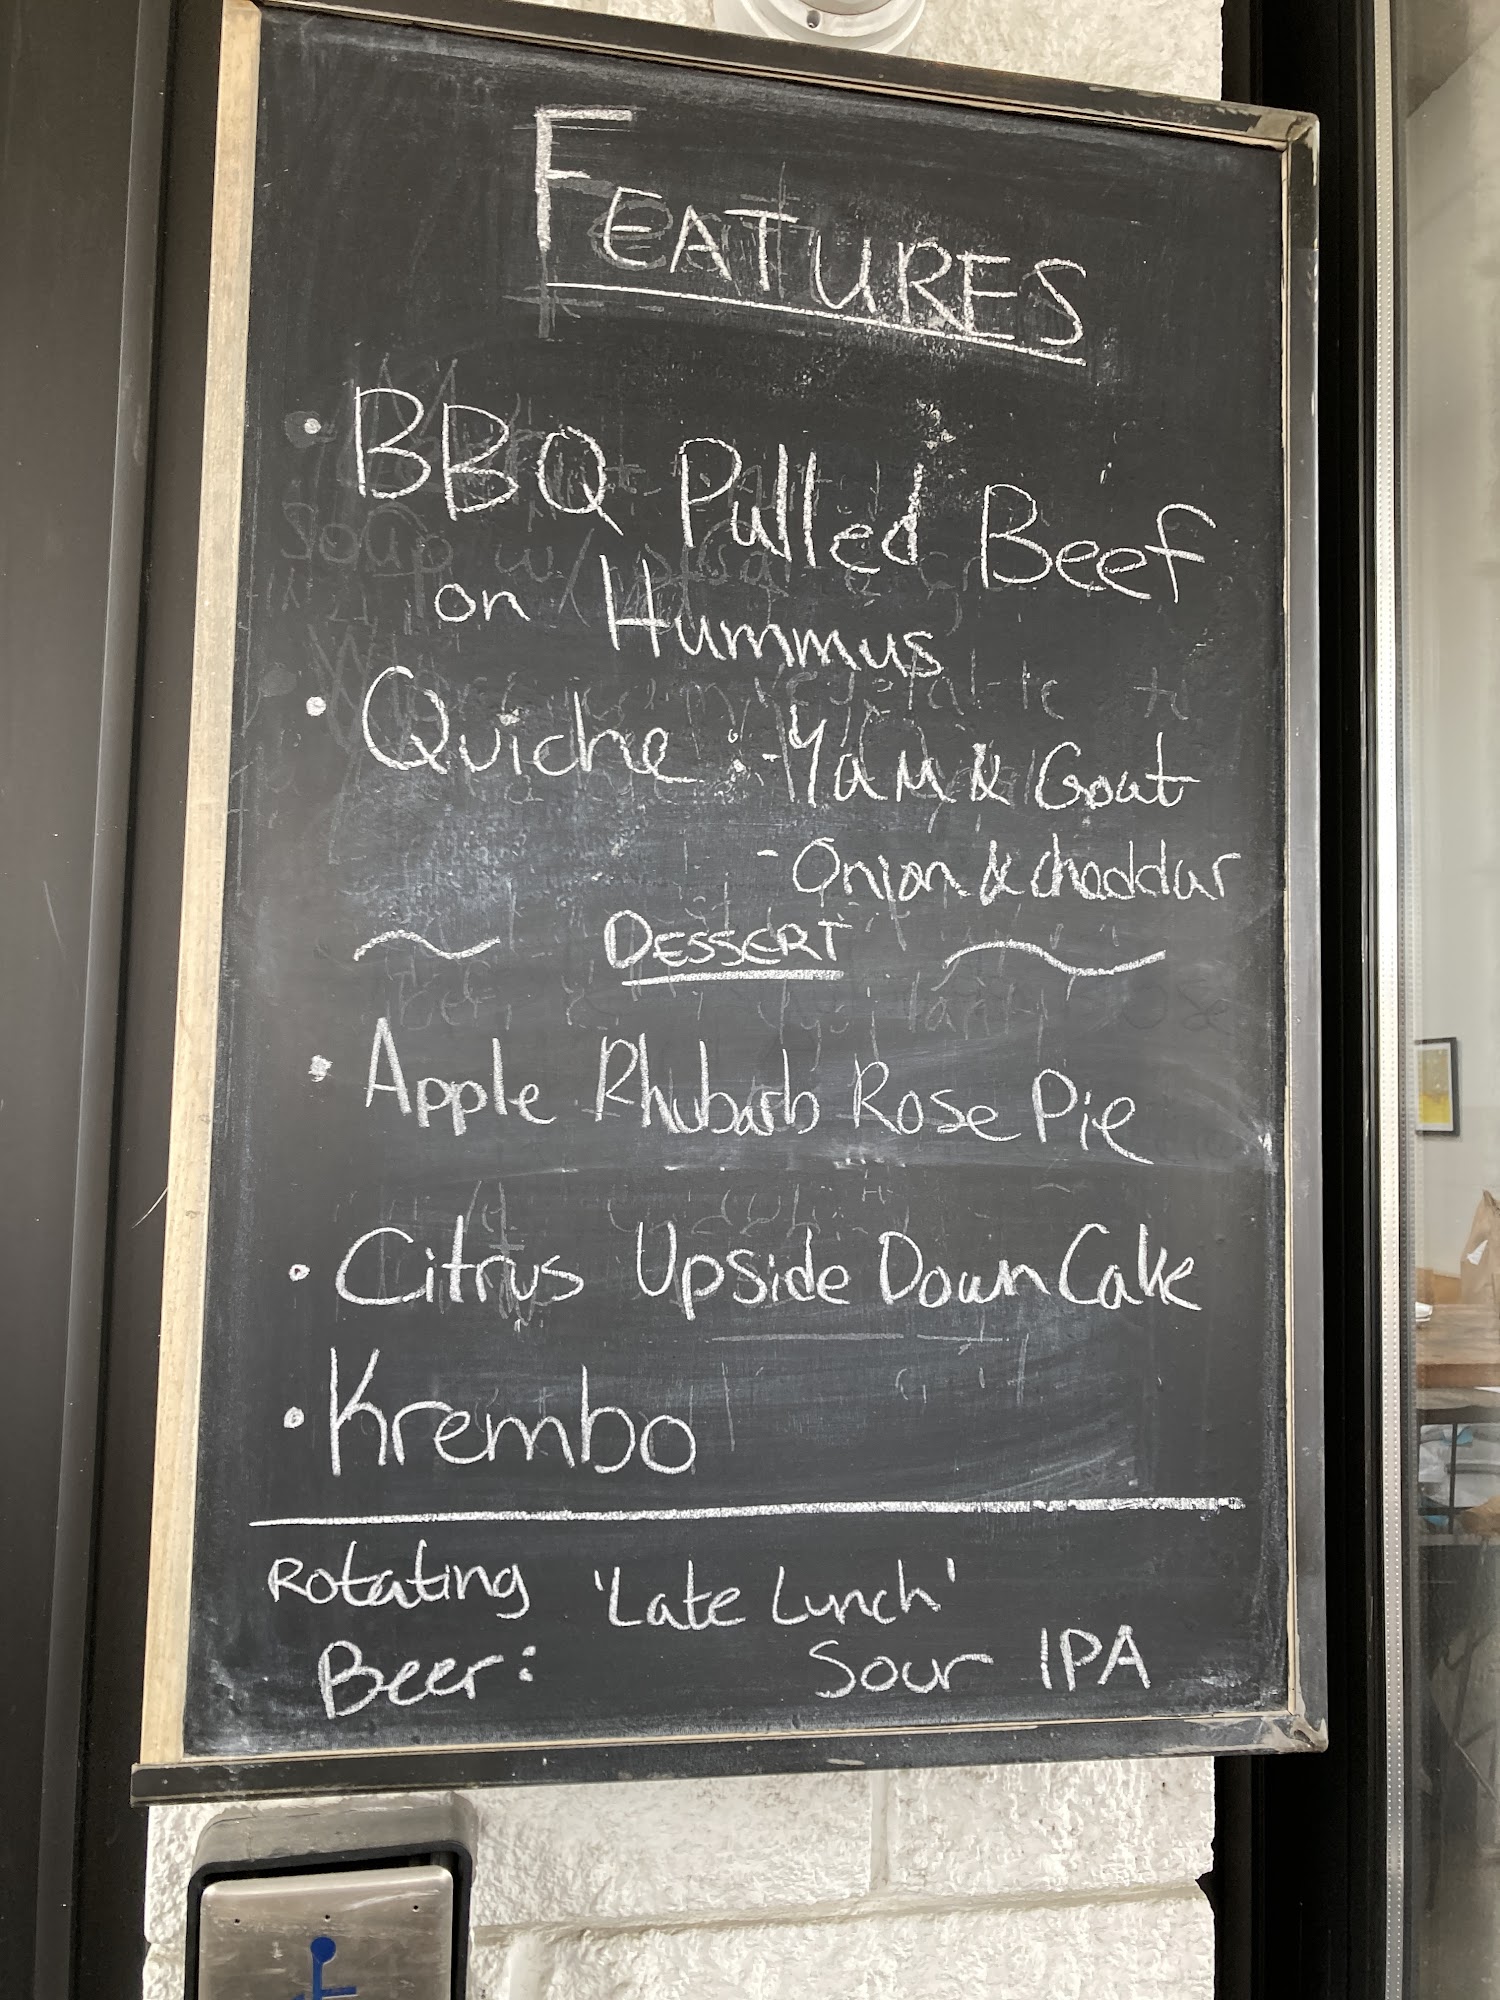 FEATURES
• BBQ Pulled Beef
on Hummus
• Quiche : - Yam & Goat
- Onion & cheddar
~ DESSERT ~
• Apple Rhubarb Rose Pie
• Citrus Upside Down Cake
• Krembo
Rotating 'Late Lunch'
Beer: Sour IPA